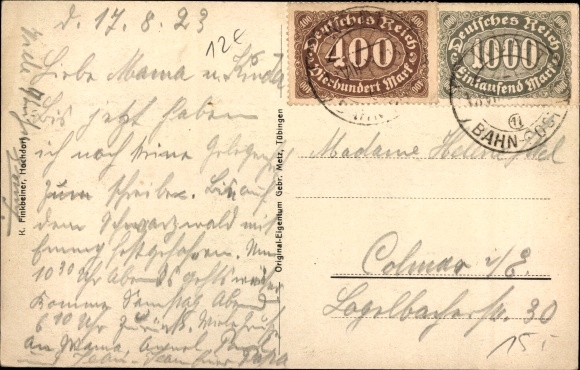 d. 17.8.23
12€
Liebe Mama u. Kinder
Bis jetzt haben
ich noch keine Gelegenheit
zum schreiben. Bin auf
dem Schwarzwald mit
Emmy festgefahren. Um
10 30 Uhr Abends gehts weiter
Komme Samstag Abend
6 10 Uhr Zurück. Viele Grüsse
an Mama,
und Jean-
Papa
K. Finkbeiner, Hochdorf
Original-Eigentum Gebr. Metz, Tübingen
Deutsches Reich
400
Vierhundert Mark
Deutsches Reich
1000
Eintausend Mark
BAHN-POST
Madame
Colmar i/E.
Logelbacher str. 30
15